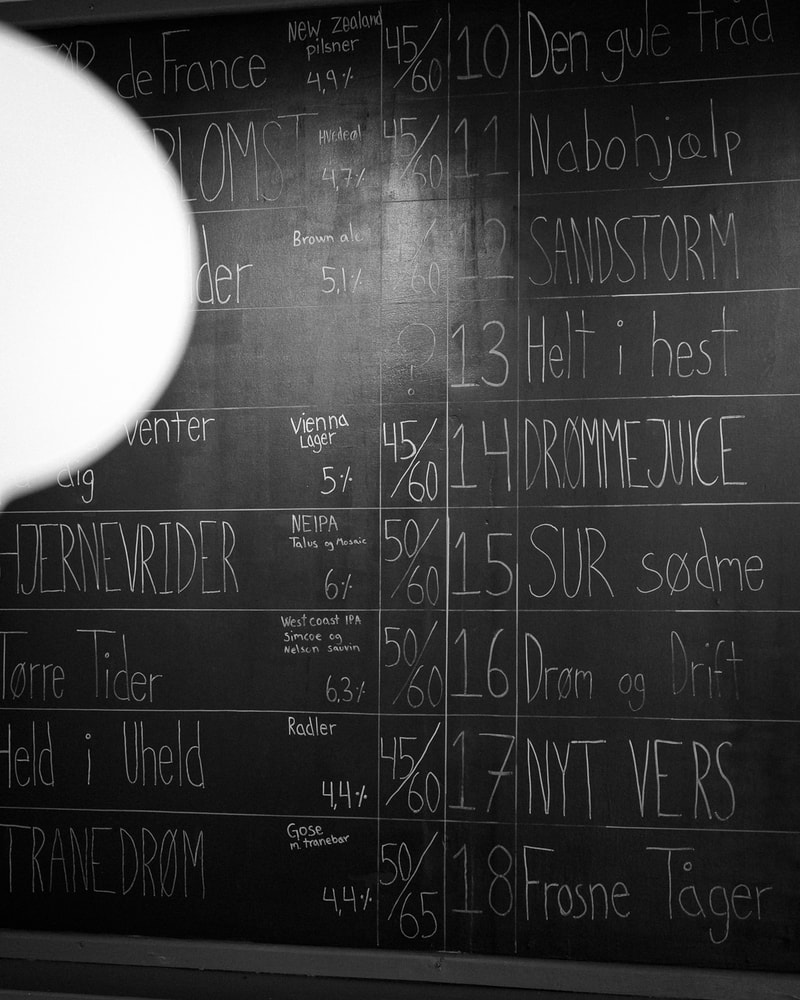 de France New Zealand
pilsner
4,9% 45/60 10 Den gule tråd
Hvedeøl
4,7% 45/60 11 Nabohjælp
Brown ale
5,1% /60 12 SANDSTORM
? 13 Helt i hest
venter Vienna
Lager
dig 5% 45/60 14 DRØMMEJUICE
HJERNEVRIDER NEIPA
Talus og Mosaic
6% 50/60 15 SUR sødme
Tørre Tider West coast IPA
Simcoe og
Nelson sauvin
6,3% 50/60 16 Drøm og Drift
Held i Uheld Radler
4,4% 45/60 17 NYT VERS
TRANEDRØM Gose
m. tranebær
4,4% 50/65 18 Frosne Tåger